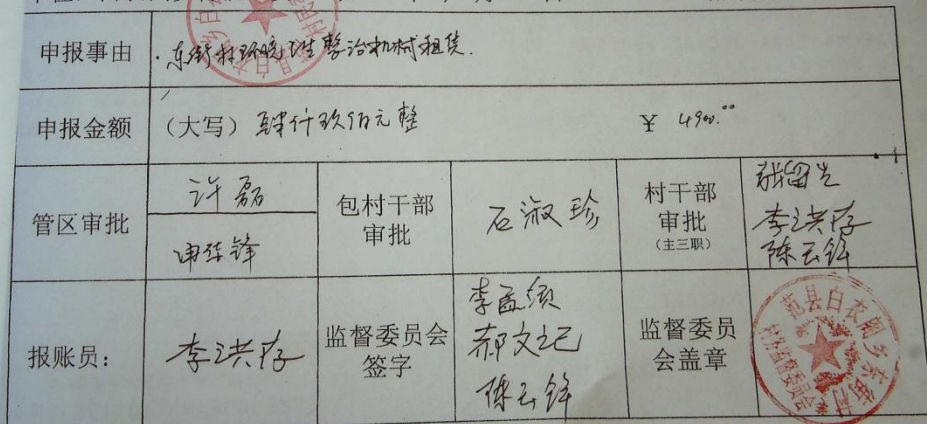 申报事由
东街村环境卫生整治机械租赁.
申报金额
（大写）肆仟玖佰元整 ¥ 4900.00
管区审批
许磊
包村干部
审批
石淑珍
村干部
审批
（主三职）
李洪存
陈云锋
报账员：
李洪存
监督委员会
签字
李孟领
陈云锋
监督委员
会盖章
范县白衣阁乡东街村
村务监督委员会